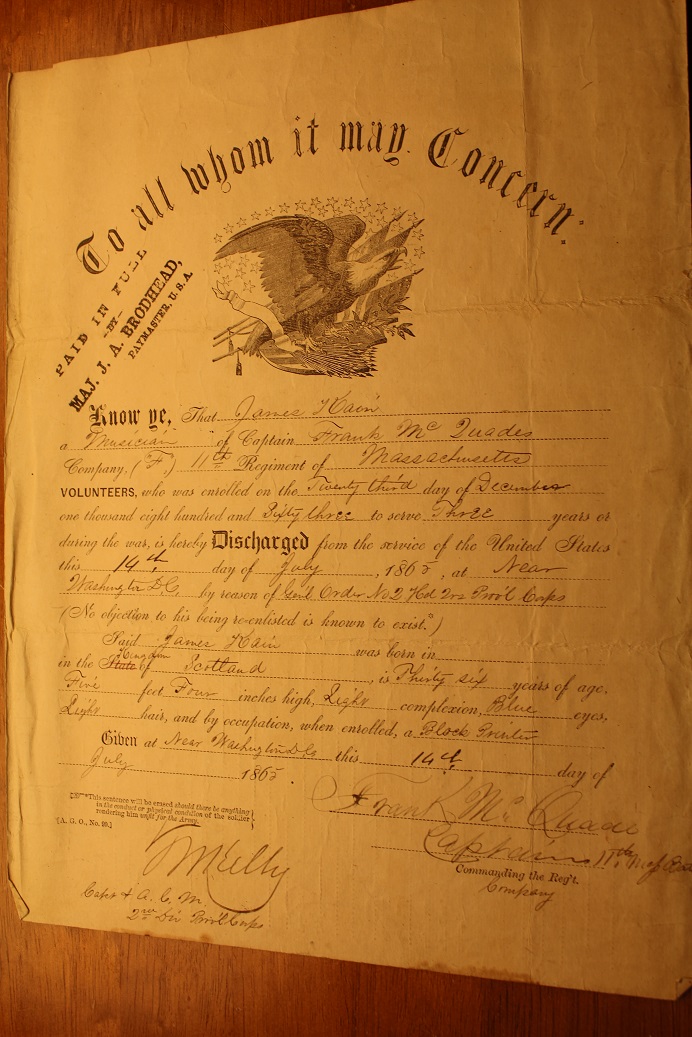 To all whom it may Concern:
PAID IN FULL
-BY-
MAJ. J. A. BRODHEAD,
PAYMASTER, U. S. A.
Know ye, That James Kain
a Musician of Captain Frank Mc Quades
Company, (F) 11th Regiment of Massachusetts
VOLUNTEERS, who was enrolled on the Twenty third day of December
one thousand eight hundred and Sixty three to serve Three years or
during the war, is hereby Discharged from the service of the United States
this 14th day of July, 1865, at Near
Washington D.C. by reason of Genl Order No 2 Hd Qrs Prov'l Corps
(No objection to his being re-enlisted is known to exist.*)
Said James Kain was born in
Kingdom
in the State of Scotland, is Thirty six years of age,
Five feet Four inches high, Light complexion, Blue eyes,
Light hair, and by occupation, when enrolled, a Block Printer
Given at Near Washington D.C. this 14th day of
July 1865.
*This sentence will be erased should there be anything
in the conduct or physical condition of the soldier
rendering him unfit for the Army.
[A. G. O., No. 99.]
Frank Mc Quade
Captain 11th
Commanding the Reg't.
Company
Kelly
Capt & A. C. M.
2nd Div Prov'l Corps